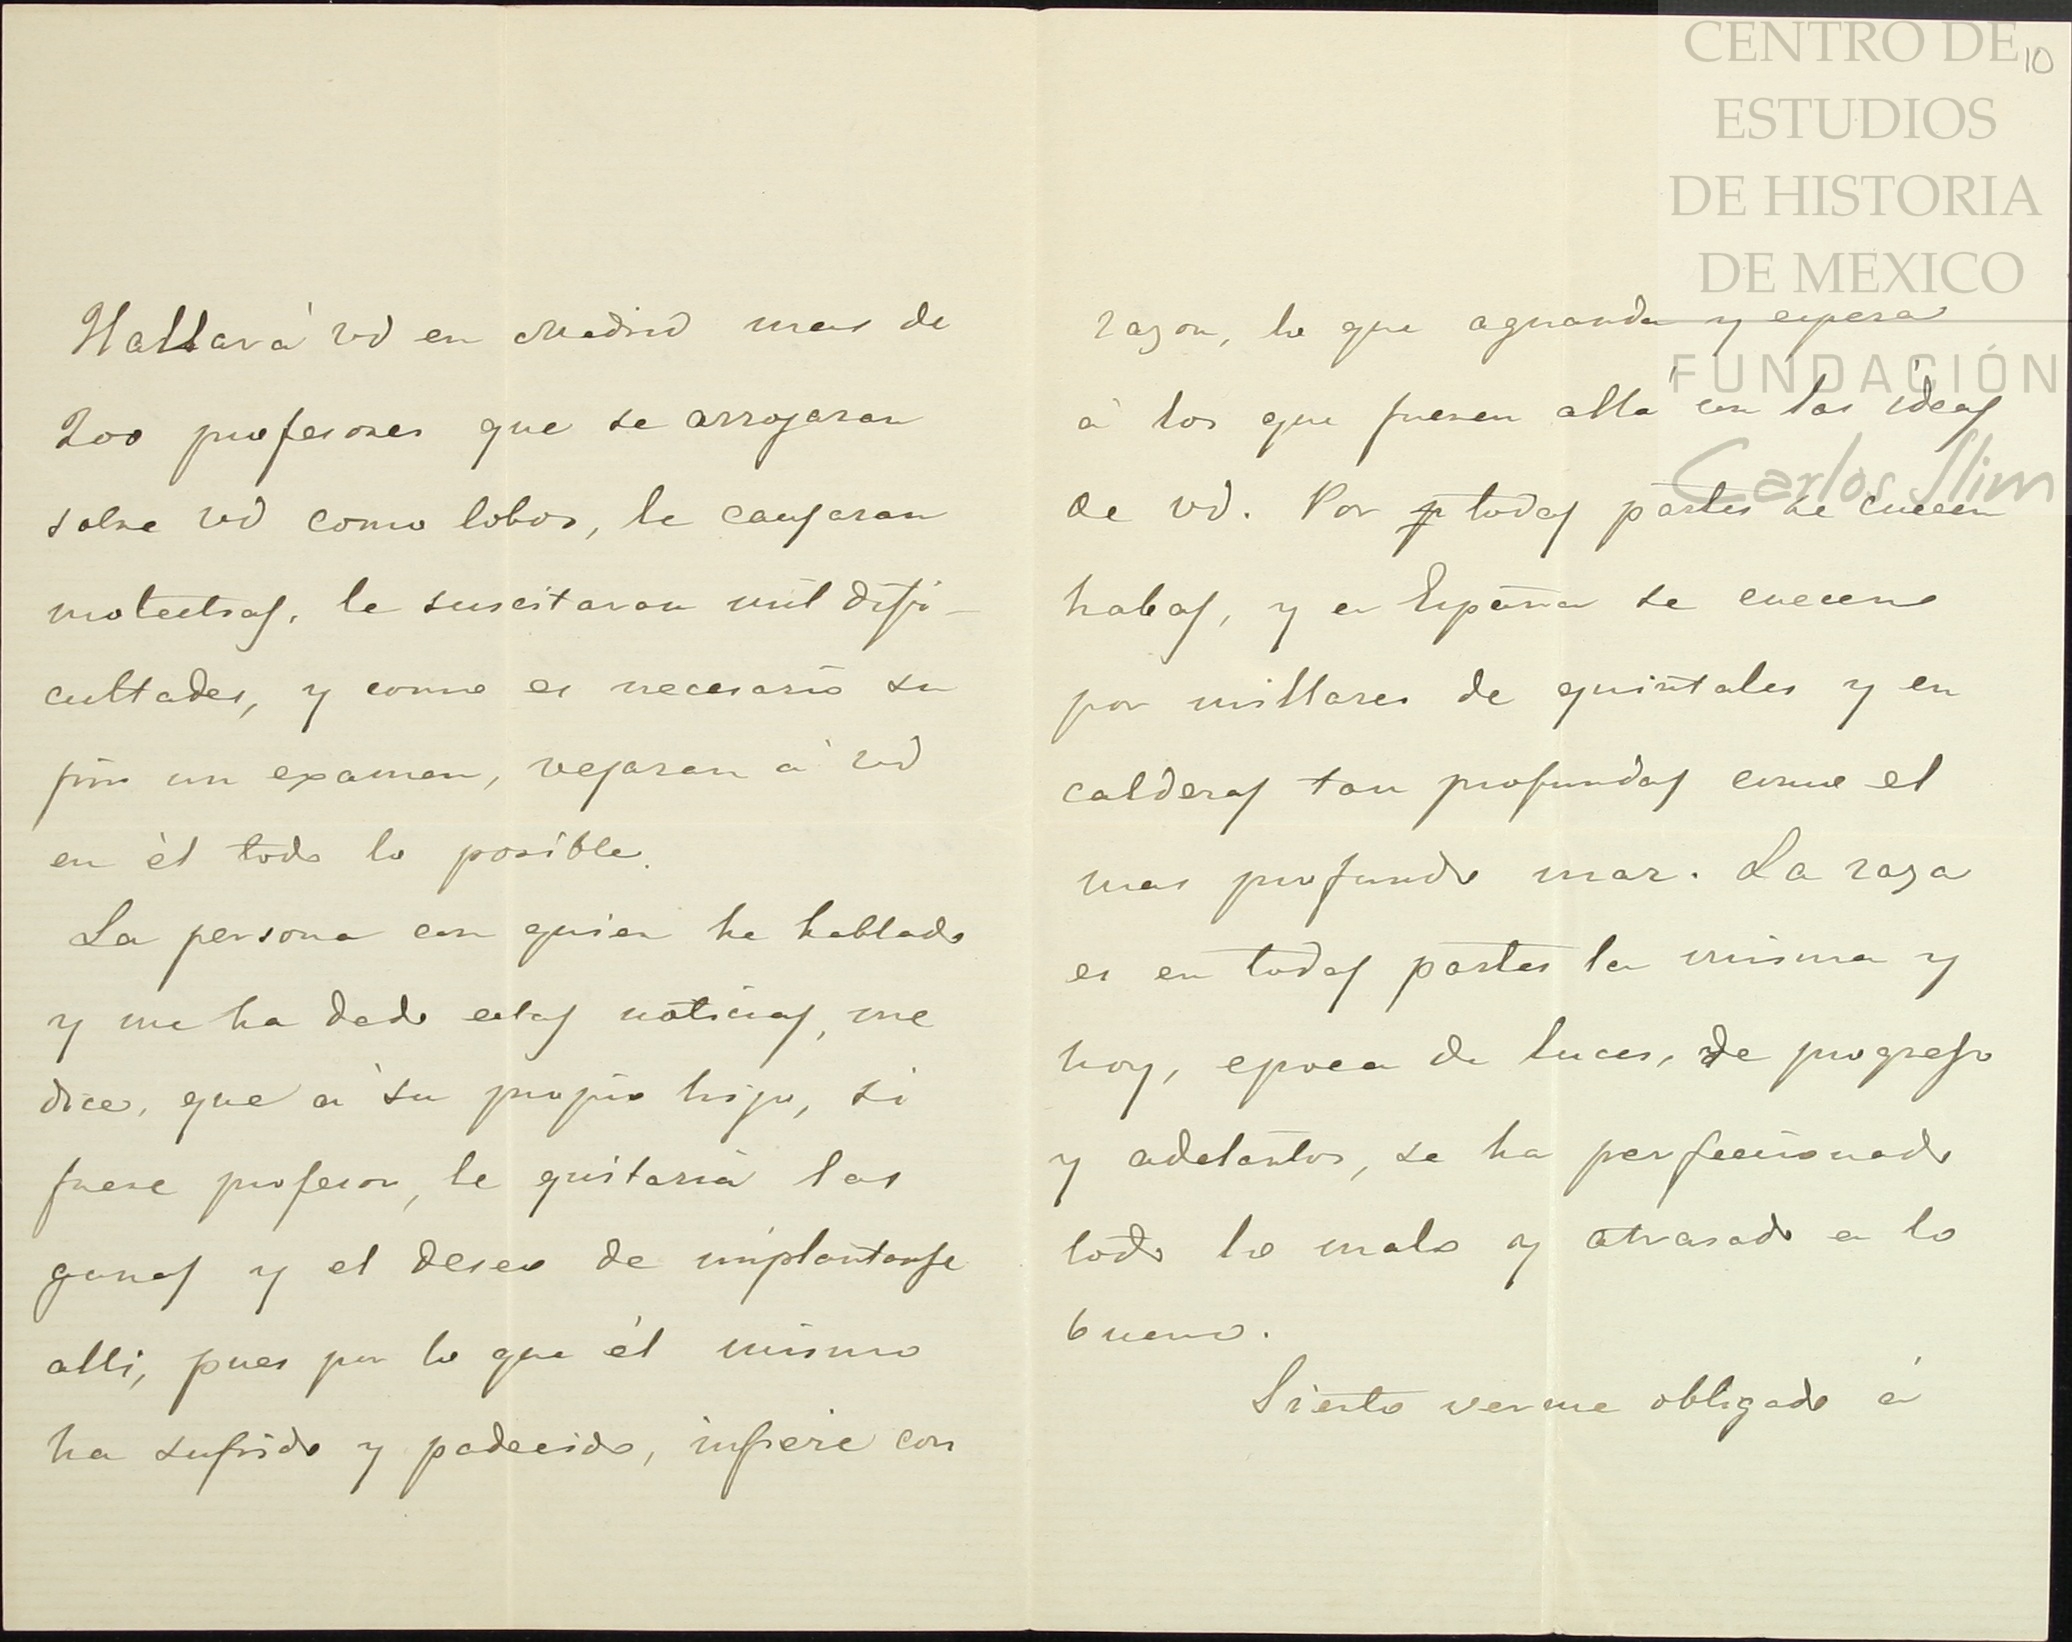 Hallará vd en Madrid mas de
200 profesores que se arrojaran
sobre vd como lobos, le causaran
molestias, le suscitaran mil difi-
cultades, y como es necesario su
frir un examen, vejaran á vd
en él todo lo posible.
La persona con quien he hablado
y me ha dado estas noticias, me
dice, que á su propio hijo, si
fuese profesor, le quitaria las
ganas y el deseo de implantarse
alli, pues por lo que él mismo
ha sufrido y padecido, infiere con
razon, lo que aguarda y espera
á los que fueren allá con las ideas
de vd. Por todas partes se cuecen
habas, y en España se cuecen
por millares de quintales y en
calderas tan profundas como el
mas profundo mar. La raza
es en todas partes la misma y
hoy, epoca de luces, de progreso
y adelantos, se ha perfeccionado
todo lo malo y atrasado a lo
bueno.
Siento verme obligado á
10
CENTRO DE
ESTUDIOS
DE HISTORIA
DE MEXICO
FUNDACIÓN
Carlos Slim